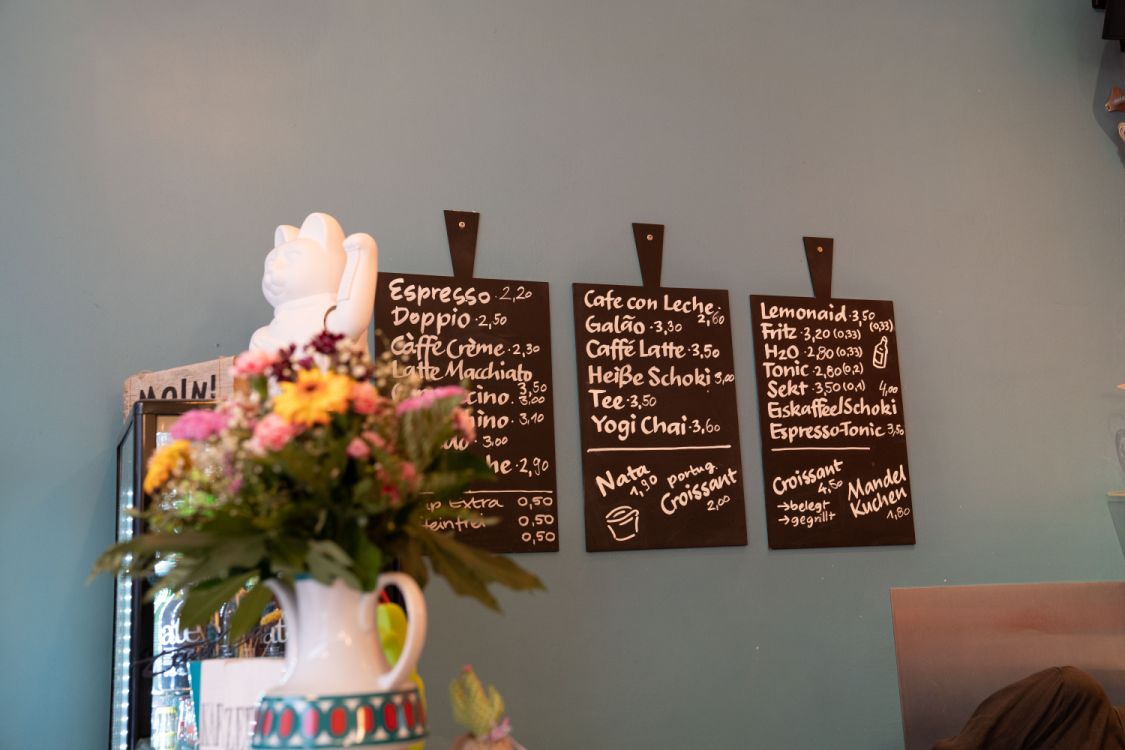 MOIN!
Espresso · 2,20
Doppio · 2,50
Càffè Crème · 2,30
Latte Macchiato
3,50
3,00
3,10
· 3,00
· 2,90
Extra 0,50
0,50
0,50
Cafe con Leche ·
2,60
Galão · 3,30
Caffé Latte · 3,50
Heiße Schoki 3,00
Tee · 3,50
Yogi Chai · 3,60
Nata
1,90
portug.
Croissant
2,00
Lemonaid · 3,50
(0,33)
Fritz · 3,20 (0,33)
H2O · 2,80 (0,33)
Tonic · 2,80 (0,2)
Sekt · 3,50 (0,1)
4,00
Eiskaffee/Schoki
Espresso-Tonic 3,50
Croissant
4,50
→ belegt
→ gegrillt
Mandel
Kuchen
1,80